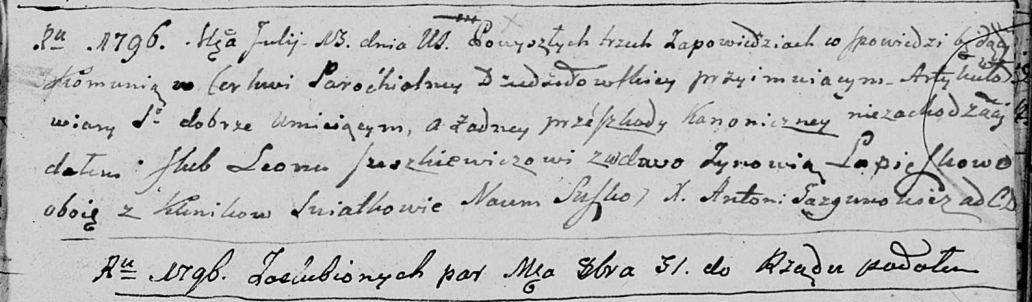 Ru 1796. Mca Julij 13. dnia Po wyszłych trzech Zapowiedziach w spowiedzi będący
Kommunią w Cerkwi Parochialney Dziedziłowskiey przyimuiącym Artykuło
wiary S. dobrze umieiącym, a żadney przészkody Kanoniczney niezachodzący
dałem ślub Leonu Suszkiewiczowi z wdawo Zynowią Łapieskowo
oboie z Świadkowie Naum Suszko X. Antoni
Ru 1796. Zaślubionych par Mca Xbra 31. do Rządu podałem